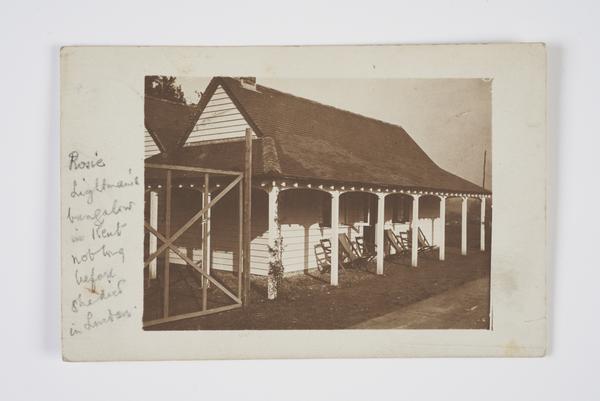 Rosie
Lightman's
bungalow
in Kent
not long
before
she died
in London.